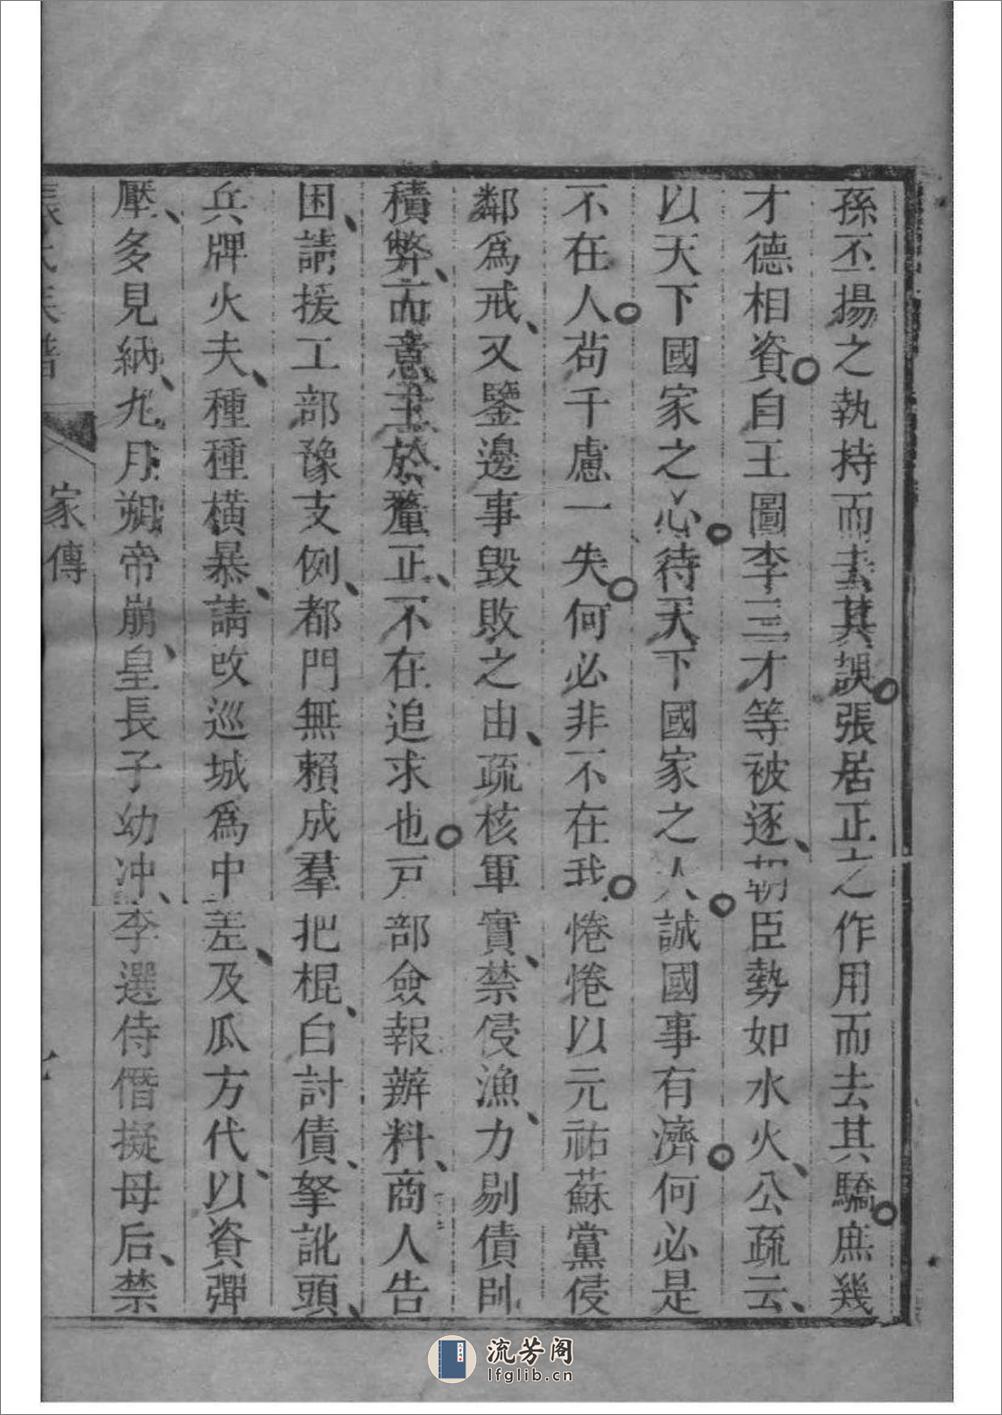 孫丕揚之執持而去其謨張居正之作用而去其驕庶幾
才德相資自王圖李三才等被逐朝臣勢如水火公疏云
以天下國家之心待天下國家之人誠國事有濟何必是
不在人苟千慮一失何必非不在我惓惓以元祐蘇黨侵
鄰爲戒又鑒邊事毀敗之由疏核軍實禁侵漁力剔債帥
積弊而意主於釐正不在追求也戸部僉報辦料商人告
困請援工部豫支例都門無賴成羣把棍白討債拏訛頭
兵牌火夫種種橫暴請改巡城爲中差及瓜方代以資彈
壓多見納九月朔帝崩皇長子幼冲李選侍僭擬母后禁
張氏族譜 家傳 七
流芳阁
lfglib.cn